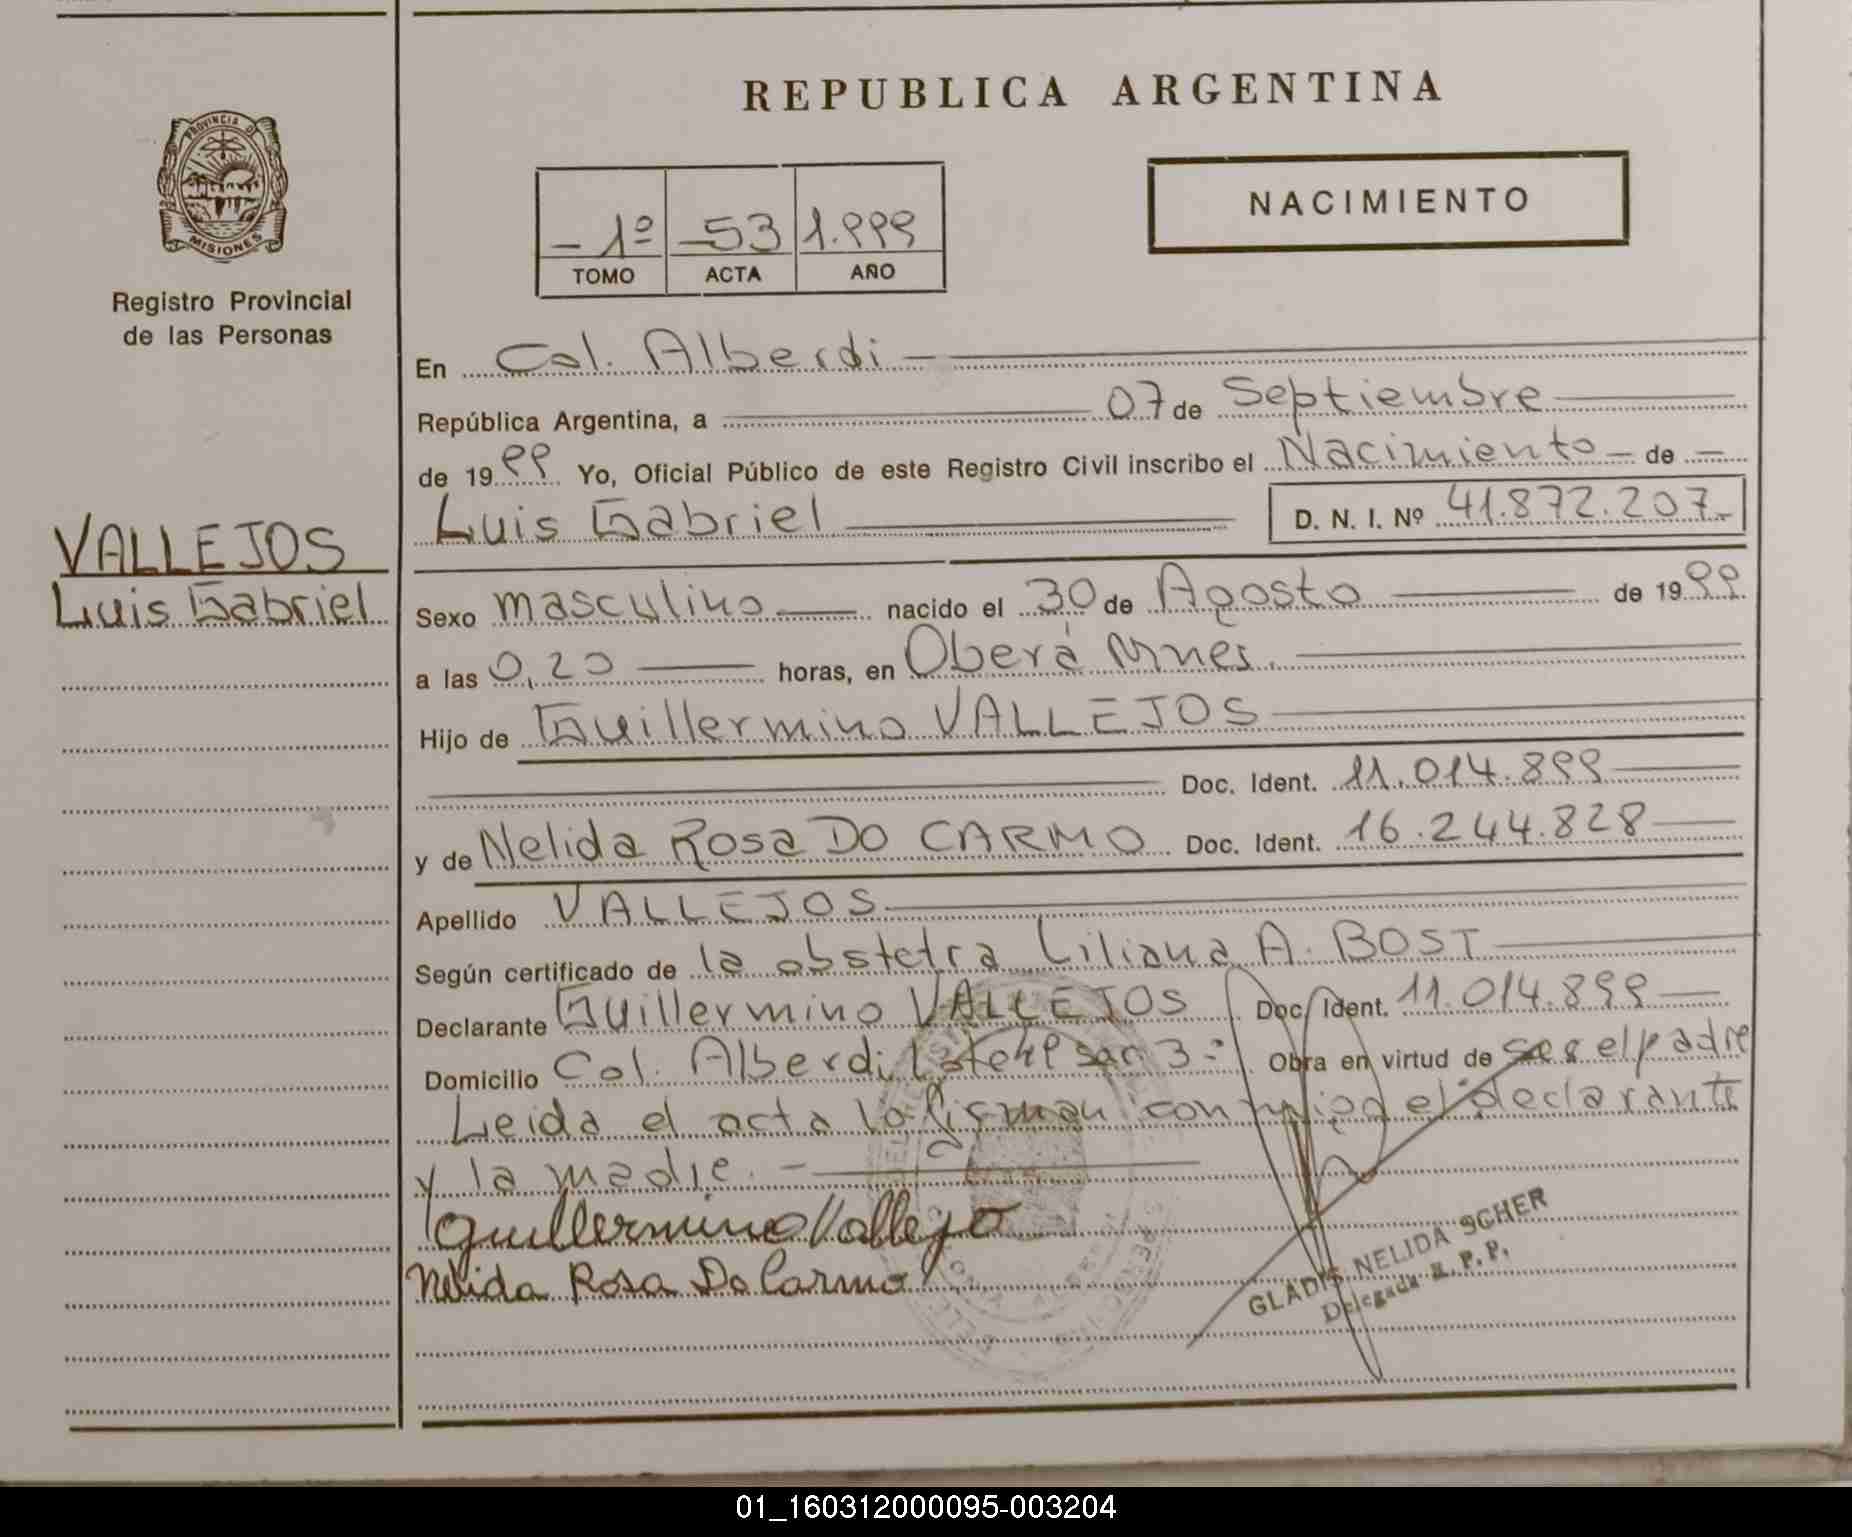 REPUBLICA ARGENTINA
PROVINCIA DE
MISIONES
Registro Provincial
de las Personas
NACIMIENTO
- 1º -53 1.999
TOMO ACTA AÑO
VALLEJOS
Luis Gabriel
En Col. Alberdi
República Argentina, a 07 de Septiembre
de 1999 Yo, Oficial Público de este Registro Civil inscribo el Nacimiento - de -
Luis Gabriel D. N. I. Nº 41.872.207.-
Sexo masculino nacido el 30 de Agosto de 1999
a las 0,20 horas, en Oberá Mnes.
Hijo de Guillermino VALLEJOS
Doc. Ident. 11.014.899
y de Nelida Rosa DO CARMO Doc. Ident. 16.244.828
Apellido VALLEJOS
Según certificado de la obstetra Liliana A. BOST
Declarante Guillermino VALLEJOS Doc. Ident. 11.014.899
Domicilio Col. Alberdi Lote sec. 3 Obra en virtud de ser el padre
Leida el acta la firman conmigo el declarante
y la madre. -
Guillermino Vallejo
Nelida Rosa Do Carmo
GLADIS NELIDA SCHER
Delegada R. P. P.
01_160312000095-003204